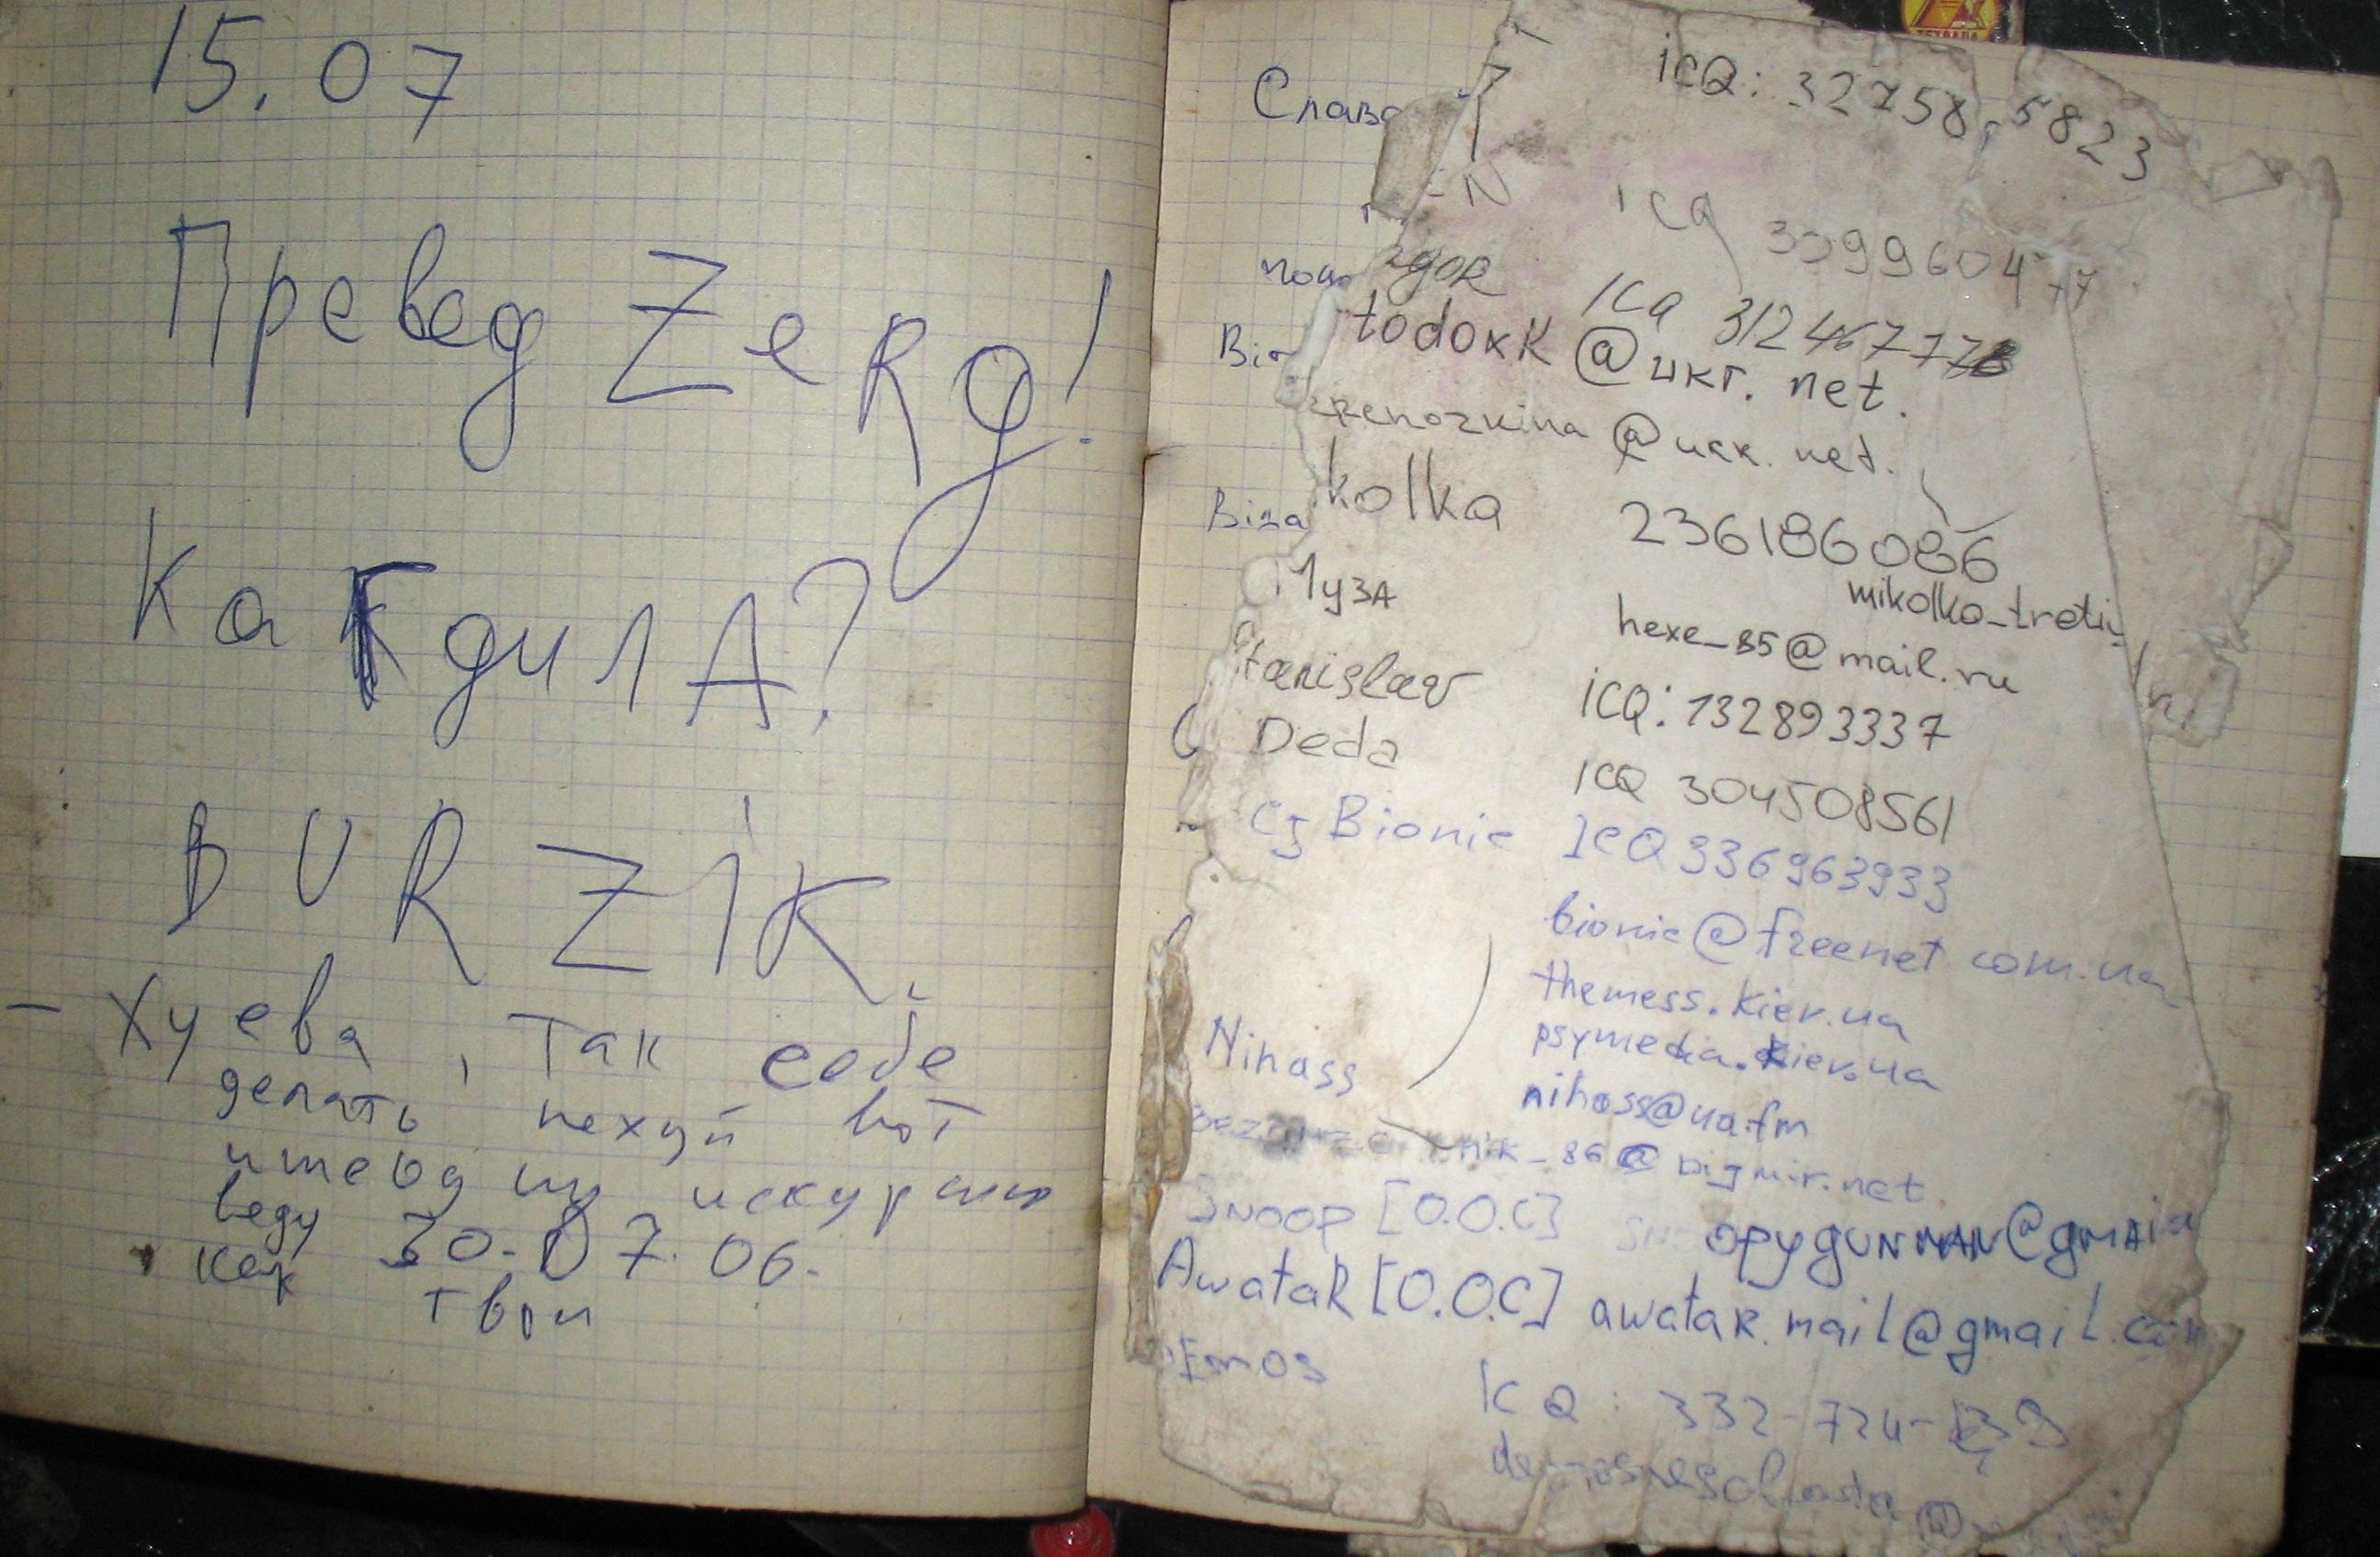 15.07
Превед ZeRg!
Каг дилА?
BURZIK.
- Хуева, так себе
делать нехуй вот
и шевд ну искурыю
веду 30.07.06.
как твои
ТЕТРАДА
Слава
ICQ: 32758 5823
ICQ 339960477
ICQ 312467778
todoxk @ukr.net.
@ukr.net.
Віза
kolka 236186086
mikolko_tretiy
Муза hexe_85@mail.ru
Stanislav ICQ: 132893337
Deda ICQ 304508561
Cj Bionic ICQ 336963933
bionic@freenet.com.ua
themess.kiev.ua
psymedia.kiev.ua
Nihass nihass@ua.fm
nik_86@bigmir.net
Snoop [O.O.C] opygunman@gmail
AwataR [O.O.C] awatar.mail@gmail.com
ICQ: 332-724-